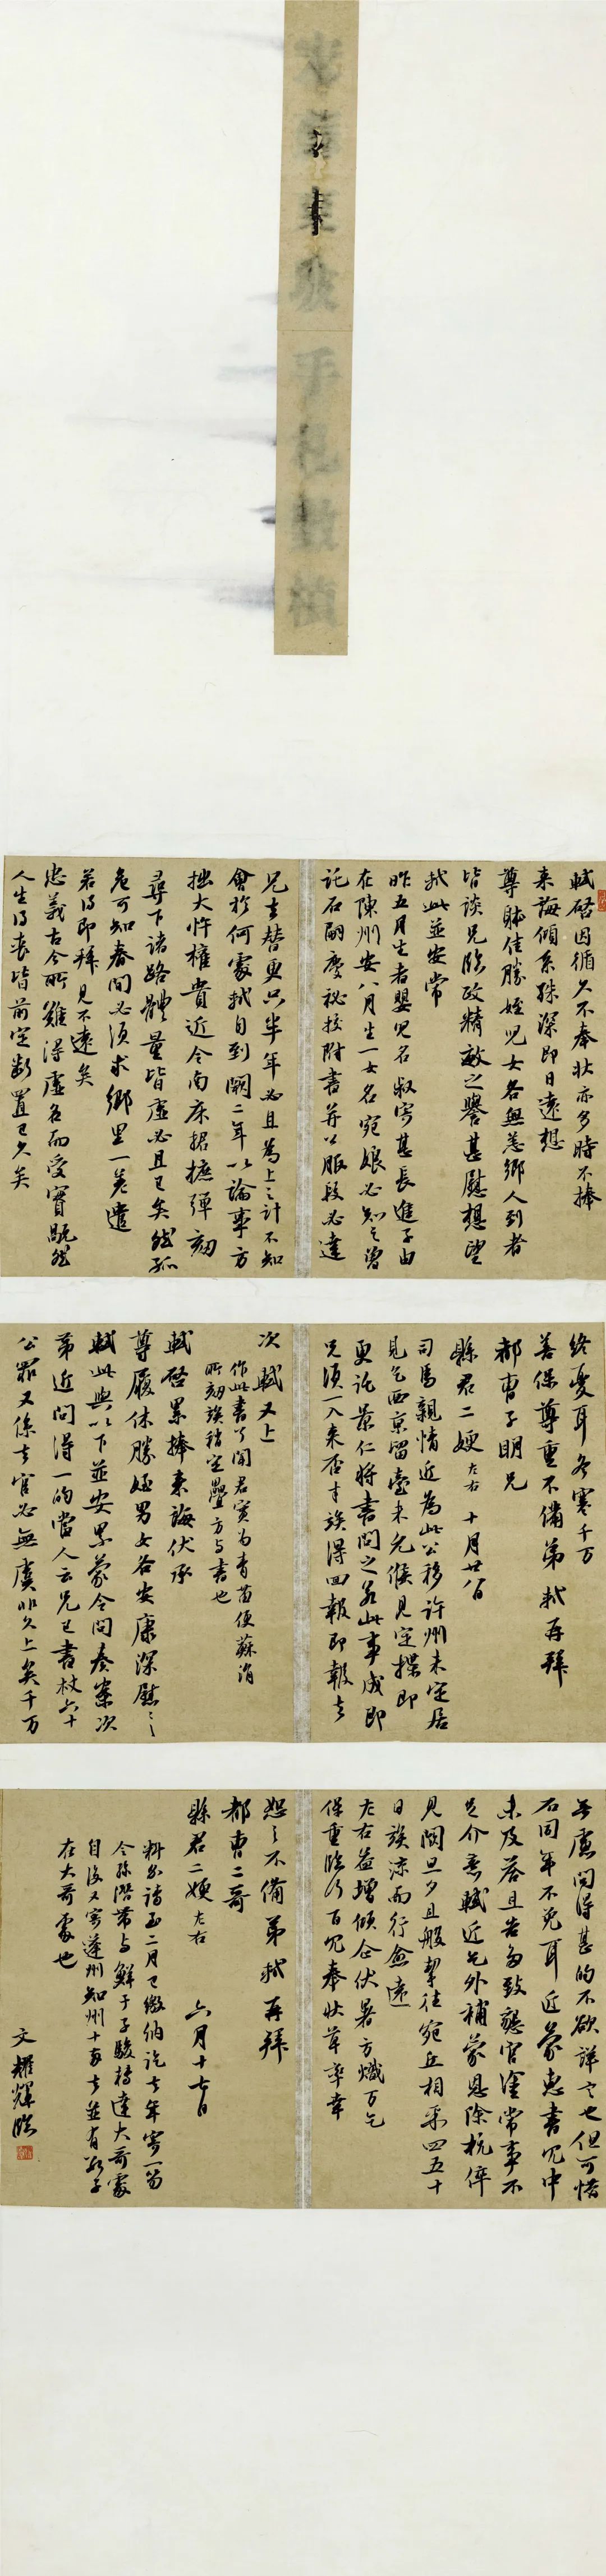 手札數楨
軾啓因循久不奉狀亦多時不捧
来誨傾系殊深即日遠想
尊體佳勝姪兒女各無恙鄉人到者
皆談兄臨政精敏之譽甚慰想望
軾此並安常
昨五月生者嬰兒名叔寄甚長進子由
在陳州安八月生一女名宛娘必知之曾
託石嗣慶祕校附書并公服段必達
兄去替更只半年必且爲上上計不知
會於何處軾自到闕二年以論事方
拙大忤權貴近令南床捃摭彈劾
尋下諸路體量皆虛必且已矣然孤
危可知春間必須求鄉里一差遣
若得即拜見不遠矣
忠義古今所難得虛名而受實既然
人生得喪皆前定斷置已久矣
終憂耳冬寒千万
善保尊重不備弟軾再拜
都曹子明兄
縣君二嫂左右 十月廿八日
司馬親情近爲此公移許州未定居
見乞西京留臺未允候見定揲即
更託景仁將書問之若此事成即
兄須一入来否才候得回報即報去
次軾又上
作此書了聞君實爲青苗使蘇涓
所劾候稍定疊方与書也
軾啓累捧来誨伏承
尊履休勝姪男女各安康深慰之
軾此與以下並安累蒙令問奏案次
第近問得一的當人云兄已書杖六十
公罪又係去官必無虞非久上矣千万
無慮問得甚的不欲詳言也但可惜
石同年不免耳近蒙惠書冗中
未及荅且告多致懇官塗常事不
足介意軾近乞外補蒙恩除杭倅
見闕旦夕且般挈往宛丘相聚四五十
日候涼而行愈遠
左右益增傾企伏暑方熾万乞
保重臨行百冗奉狀草率幸
恕之不備弟軾再拜
都曹二哥
縣君二嫂左右 六月十七日
料錢請至二月已繳納訖去年寄一笏
令孫潛帶与鮮于子駿轉達大哥處
自後又寄蓬州知州十千去並有公子
在大哥處也
文耀輝臨